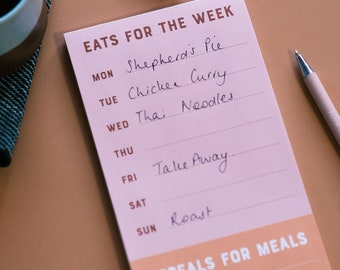 EATS FOR THE WEEK
MON Shepherd's Pie
TUE Chicken Curry
WED Thai Noodles
THU
FRI TakeAway
SAT
SUN Roast
FOR MEALS